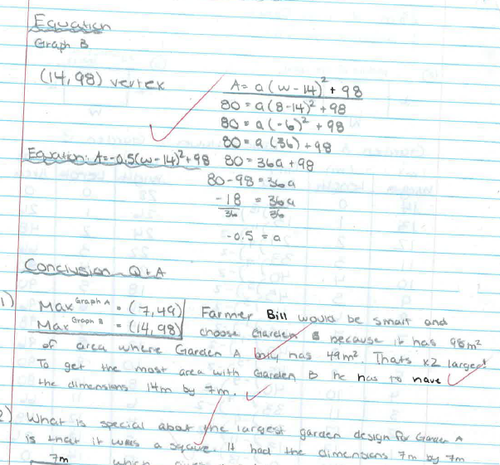 Equation
Graph B
(14,98) vertex
A = a(w-14)² + 98
80 = a(8-14)² + 98
80 = a(-6)² + 98
80 = a(36) + 98
Equation: A=-0.5(w-14)²+98
80 = 36a + 98
80-98 = 36a
-18/36 = 36a/36
-0.5 = a
Conclusion Q+A
1) Max Graph A = (7,49)
Max Graph B = (14,98)
Farmer Bill would be smart and
choose Garden B because it has 98m²
of area where Garden A only has 49m². Thats x2 larger!
To get the most area with Garden B he has to have
the dimensions 14m by 7m.
2) What is special about the largest garden design for Garden A
is that it was a square. It had the dimensions 7m by 7m
7m which